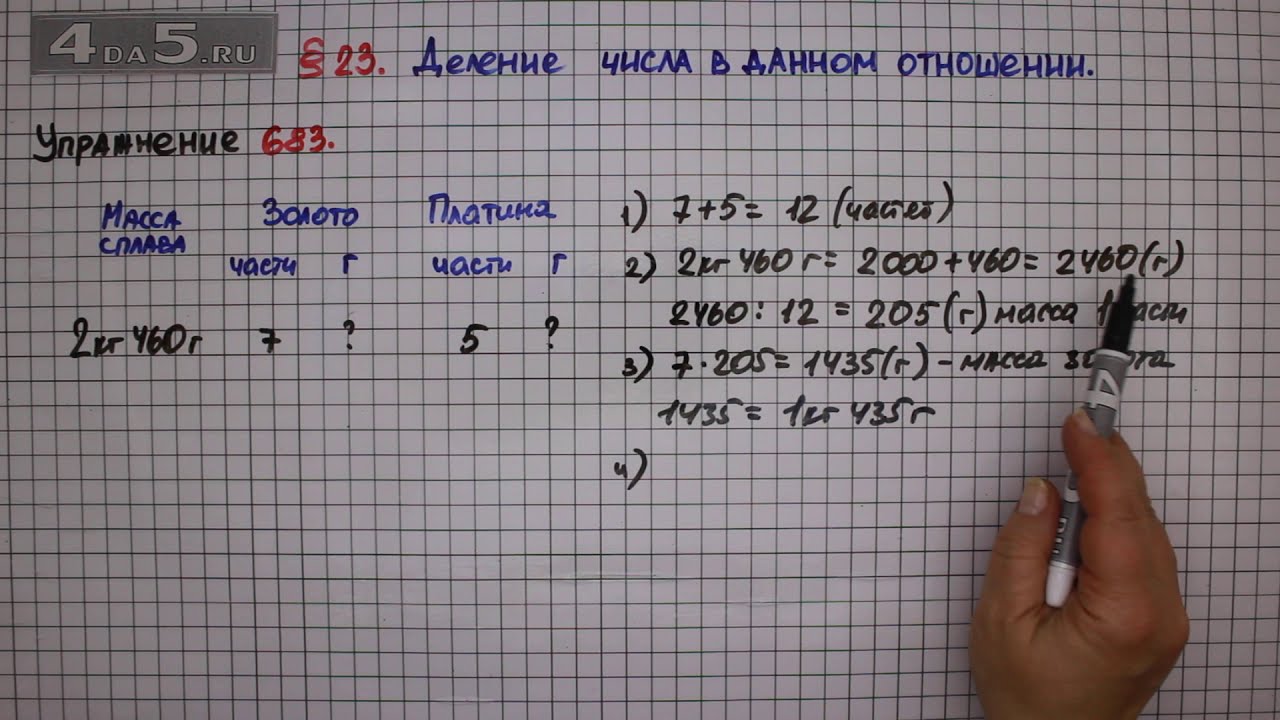 4DA5.RU
§ 23. Деление числа в данном отношении.
Упражнение 683.
Масса сплава
Золото
Платина
части г
части г
2кг 460г 7 ? 5 ?
1) 7+5= 12 (частей)
2) 2кг 460 г = 2000+460= 2460(г)
2460 : 12 = 205(г) масса 1
3) 7·205= 1435(г) – масса
1435= 1кг 435г
4)